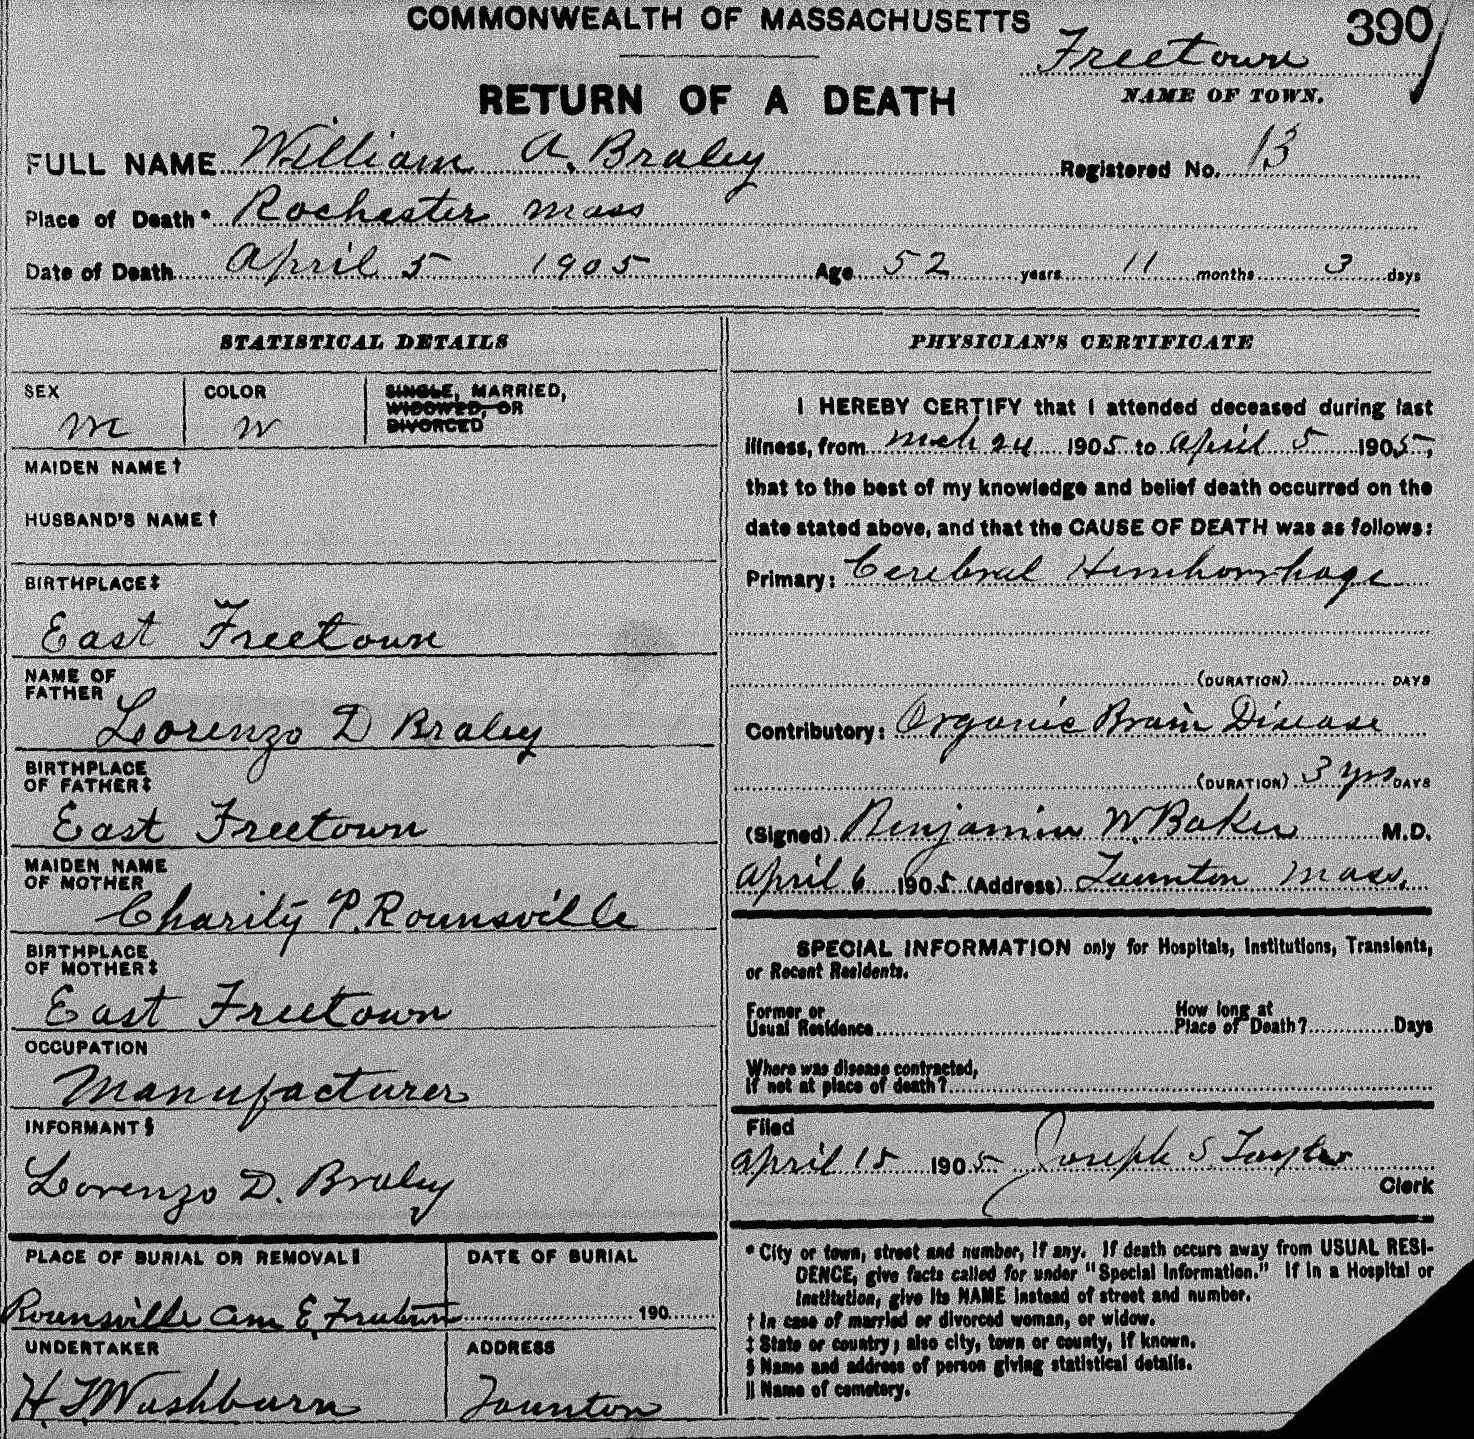 COMMONWEALTH OF MASSACHUSETTS
390
Freetown
NAME OF TOWN.
RETURN OF A DEATH
FULL NAME William A. Braley Registered No. 13
Place of Death* Rochester Mass
Date of Death April 5 1905 Age 52 years 11 months 3 days
STATISTICAL DETAILS
SEX COLOR SINGLE, MARRIED,
WIDOWED, OR
DIVORCED
M W
MAIDEN NAME †
HUSBAND'S NAME †
BIRTHPLACE ‡
East Freetown
NAME OF
FATHER
Lorenzo D Braley
BIRTHPLACE
OF FATHER ‡
East Freetown
MAIDEN NAME
OF MOTHER
Charity P. Rounsville
BIRTHPLACE
OF MOTHER ‡
East Freetown
OCCUPATION
Manufacturer
INFORMANT §
Lorenzo D. Braley
PLACE OF BURIAL OR REMOVAL ‖ DATE OF BURIAL
Rounsville Cem E. Freetown 190
UNDERTAKER ADDRESS
H. Washburn Taunton
PHYSICIAN'S CERTIFICATE
I HEREBY CERTIFY that I attended deceased during last
illness, from Mch 24 1905 to April 5 1905,
that to the best of my knowledge and belief death occurred on the
date stated above, and that the CAUSE OF DEATH was as follows:
Primary: Cerebral Hemhorrhage
(DURATION) DAYS
Contributory: Organic Brain Disease
(DURATION) 3 yrs DAYS
(Signed) Benjamin W. Baker M.D.
April 6 1905 (Address) Taunton Mass.
SPECIAL INFORMATION only for Hospitals, Institutions, Transients,
or Recent Residents.
Former or
Usual Residence
How long at
Place of Death? Days
Where was disease contracted,
if not at place of death?
Filed
April 15 1905 Joseph S. Taylor
Clerk
* City or town, street and number, if any. If death occurs away from USUAL RESI-
DENCE, give facts called for under "Special Information." If in a Hospital or
Institution, give its NAME instead of street and number.
† In case of married or divorced woman, or widow.
‡ State or country; also city, town or county, if known.
§ Name and address of person giving statistical details.
‖ Name of cemetery.